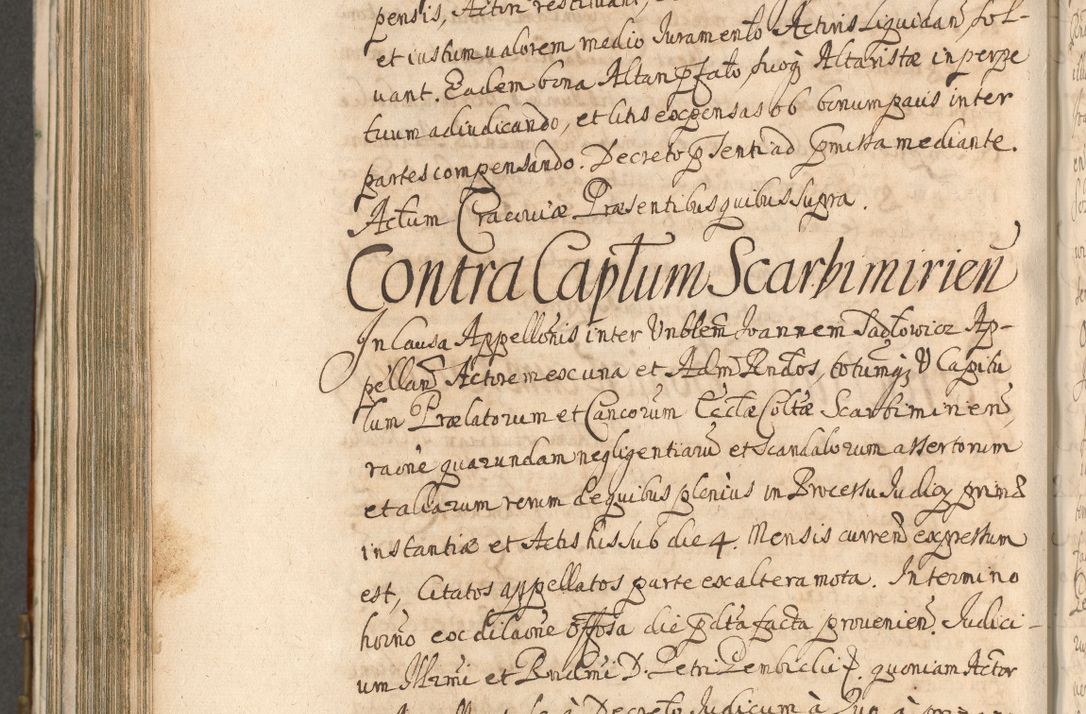 pensis, Actori restituant,
et iustum valorem medio Juramento Actoris liquidan̄ sol-
uant. Eadem bona Altari pfato, suoq Altaristæ in perpe
tuum adiudicando, et litis expensas ob bonum pacis inter
partes compensando. Decreto pñsenti ad pmissa mediante.
Actum Cracoviæ Præsentibus quibus supra.
Contra Capłum Scarbimirien̄
In Causa Appellōnis inter Vnblem̄ Joannem Sadłowicz Ap-
pellan̄ Actorem ex una et Adm̄ Rndos, totumq; V Capitu
lum Prælatorum et Cancorum Eccłæ Coltæ Scarbimirien̄
raōne quarundam negligentiarū et scandalorum assertorum
et aliarum rerum de quibus plenius in Processu Judicy primæ
instantiæ et Actis his sub die 4. Mensis curren̄ expressum
est, Citatos appellatos parte ex altera mota. In termino
horno ex dilaōne die pdta facta prouenien̄. Judici-
um Illrmi et Rndmi D. Petri Gembiclii P. quoniam Actor
Judicum à